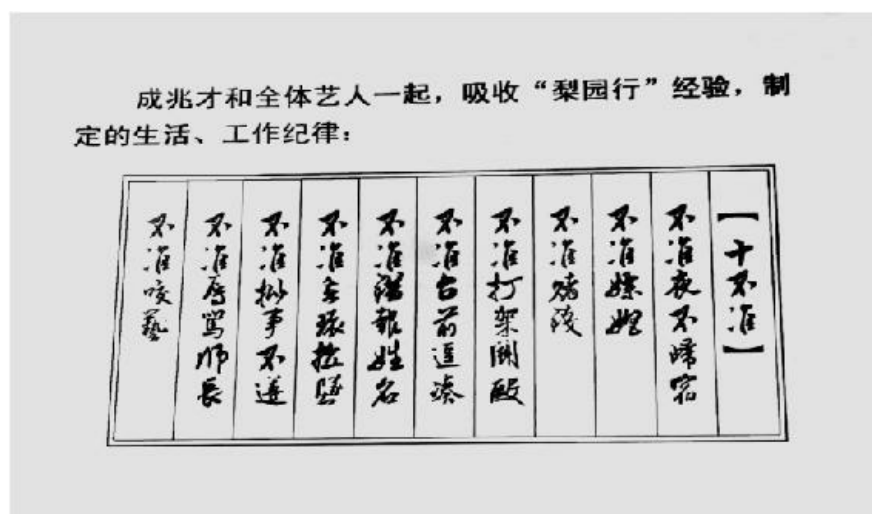 成兆才和全体艺人一起，吸收“梨园行”经验，制
定的生活、工作纪律：
【十不准】
不准夜不归宿
不准嫖娼
不准赌
不准打架闹殴
不准台前逗凑
不准瞒报姓名
不准
不准拗事不遵
不准辱骂师长
不准咬艺